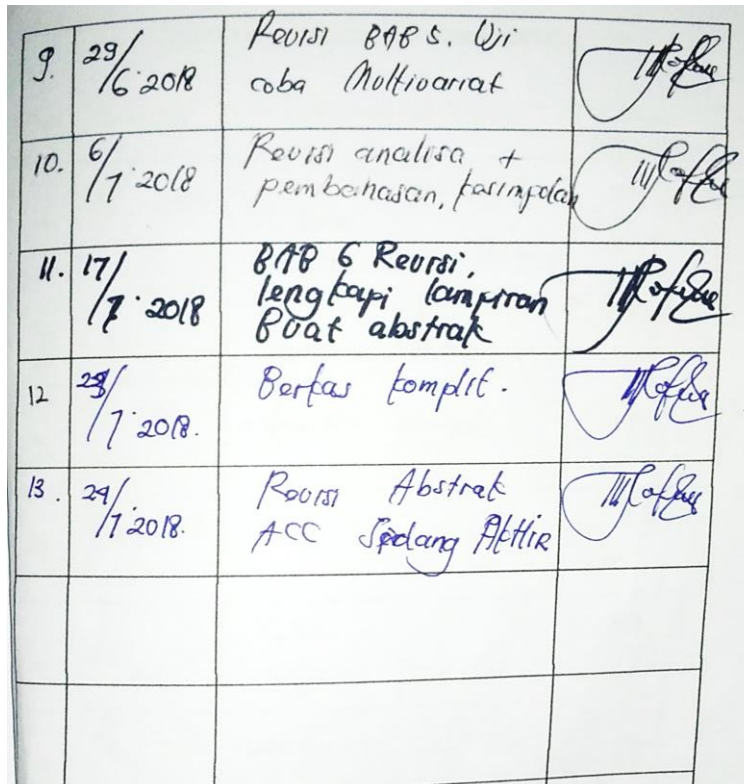 9. 29/6 2018 Revisi BAB 5. Uji
coba Multivariat
10. 6/7 2018 Revisi analisa +
pembahasan, kesimpulan
11. 17/7 2018 BAB 6 Revisi,
lengkapi lampiran
Buat abstrak
12 /7 2018. Berkas komplit.
13. 24/7 2018. Revisi Abstrak
ACC Sidang AkHiR